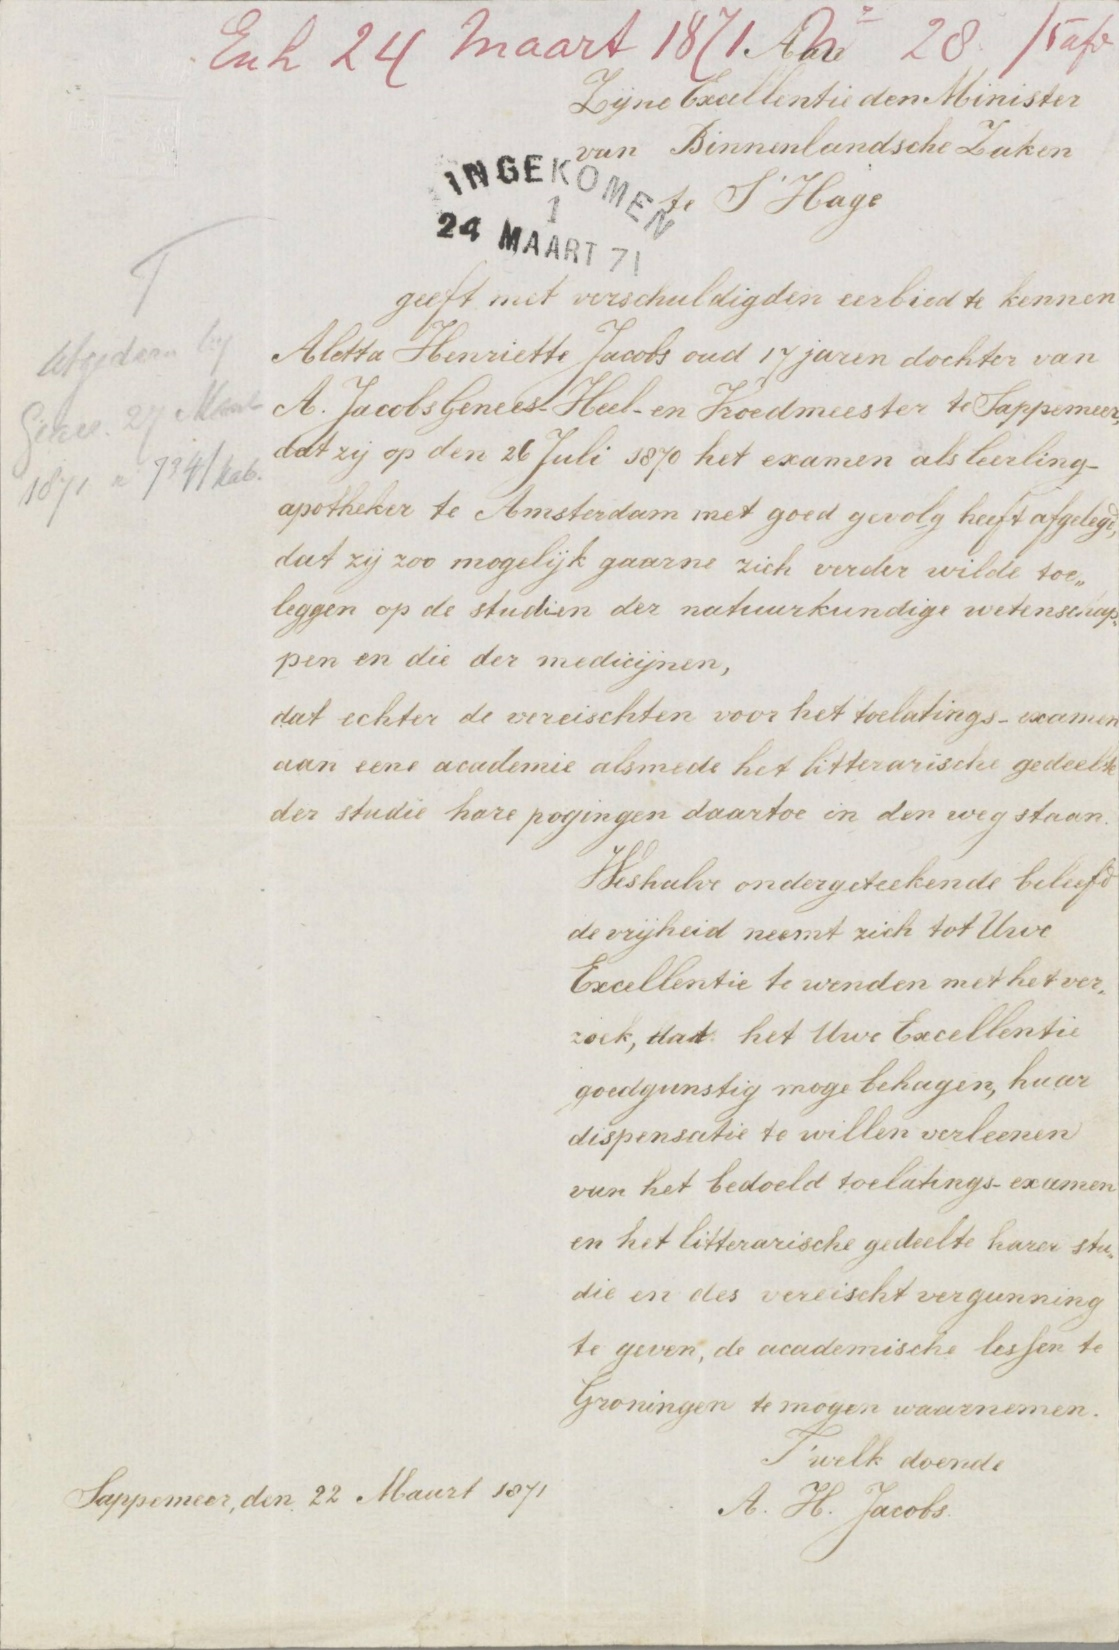 Exh 24 Maart 1871 No 28. / 5 afd
Aan
Zijne Excellentie den Minister
van Binnenlandsche Zaken
te S'Hage
INGEKOMEN
1
24 MAART 71
T
1871 n 734/Kab.
geeft met verschuldigden eerbied te kennen
Aletta Henriette Jacobs oud 17 jaren dochter van
A. Jacobs Genees-Heel-en Vroedmeester te Sappemeer,
dat zij op den 26 Juli 1870 het examen als leerling-
apotheker te Amsterdam met goed gevolg heeft afgelegd,
dat zij zoo mogelijk gaarne zich verder wilde toe„
leggen op de studien der natuurkundige wetenschap„
pen en die der medicijnen,
dat echter de vereischten voor het toelatings-examen
aan eene academie alsmede het litterarische gedeelte
der studie hare pogingen daartoe in den weg staan.
Weshalve ondergeteekende beleefd
de vrijheid neemt zich tot Uwe
Excellentie te wenden met het ver„
zoek, dat het Uwe Excellentie
goedgunstig moge behagen, haar
dispensatie te willen verleenen
van het bedoeld toelatings-examen
en het litterarische gedeelte harer stu„
die en des vereischt vergunning
te geven, de academische lessen te
Groningen te mogen waarnemen.
T'welk doende
A. H. Jacobs.
Sappemeer, den 22 Maart 1871